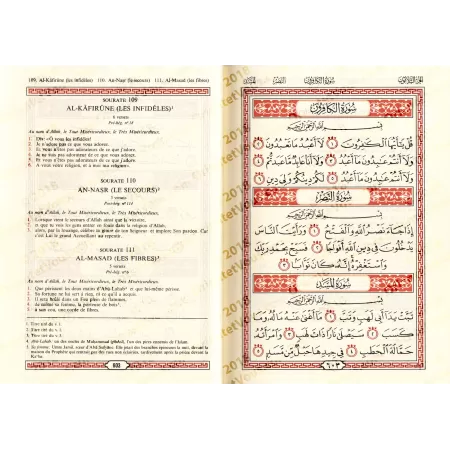 109. Al-Kâfirûne (les infidèles) 110. An-Nasr (le secours) 111. Al-Masad (les fibres)
SOURATE 109
AL-KÂFIRÛNE (LES INFIDÈLES)¹
6 versets
Pré-Hég. n° 18
Au nom d'Allah, le Tout Miséricordieux, le Très Miséricordieux.
1. Dis: «Ô vous les infidèles!
2. Je n'adore pas ce que vous adorez.
3. Et vous n'êtes pas adorateurs de ce que j'adore.
4. Je ne suis pas adorateur de ce que vous adorez.
5. Et vous n'êtes pas adorateurs de ce que j'adore.
6. A vous votre religion, et à moi ma religion».
SOURATE 110
AN-NASR (LE SECOURS)²
3 versets
Post-Hég. n° 114
Au nom d'Allah, le Tout Miséricordieux, le Très Miséricordieux.
1. Lorsque vient le secours d'Allah ainsi que la victoire,
2. et que tu vois les gens entrer en foule dans la religion d'Allah,
3. alors, par la louange, célèbre la gloire de ton Seigneur et implore Son pardon. Car
c'est Lui le grand Accueillant au repentir.
SOURATE 111
AL-MASAD (LES FIBRES)³
5 versets
Pré-Hég. n° 6
Au nom d'Allah, le Tout Miséricordieux, le Très Miséricordieux.
1. Que périssent les deux mains d'Abû-Lahab⁴ et que lui-même périsse.
2. Sa fortune ne lui sert à rien, ni ce qu'il a acquis.
3. Il sera brûlé dans un Feu plein de flammes,
4. de même sa femme, la porteuse de bois⁵,
5. à son cou, une corde de fibres.
1. Titre tiré du v. 1.
2. Titre tiré du v. 1.
3. Titre tiré du v. 5.
603
الجزء الثلاثون
سورة الكافرون
النصر
المسد
سُورَةُ الْكَافِرُونَ
بسم الله الرحمن الرحيم
قُلْ يَٰٓأَيُّهَا الْكَٰفِرُونَ ١ لَآ أَعْبُدُ مَا تَعْبُدُونَ ٢
وَلَآ أَنتُمْ عَٰبِدُونَ مَآ أَعْبُدُ ٣ وَلَآ أَنَا۠ عَابِدٌ مَّا عَبَدتُّمْ ٤
وَلَآ أَنتُمْ عَٰبِدُونَ مَآ أَعْبُدُ ٥ لَكُمْ دِينُكُمْ وَلِىَ دِينِ ٦
سُورَةُ النَّصْرِ
بسم الله الرحمن الرحيم
إِذَا جَآءَ نَصْرُ اللَّهِ وَالْفَتْحُ ١ وَرَأَيْتَ النَّاسَ
يَدْخُلُونَ فِى دِينِ اللَّهِ أَفْوَاجًا ٢ فَسَبِّحْ بِحَمْدِ رَبِّكَ
وَاسْتَغْفِرْهُ إِنَّهُۥ كَانَ تَوَّابًۢا ٣
سُورَةُ الْمَسَدِ
بسم الله الرحمن الرحيم
تَبَّتْ يَدَآ أَبِى لَهَبٍ وَتَبَّ ١ مَآ أَغْنَىٰ عَنْهُ مَالُهُۥ وَمَا
كَسَبَ ٢ سَيَصْلَىٰ نَارًا ذَاتَ لَهَبٍ ٣ وَامْرَأَتُهُۥ
حَمَّالَةَ الْحَطَبِ ٤ فِى جِيدِهَا حَبْلٌ مِّن مَّسَدٍۭ ٥
٦٠٣
2018